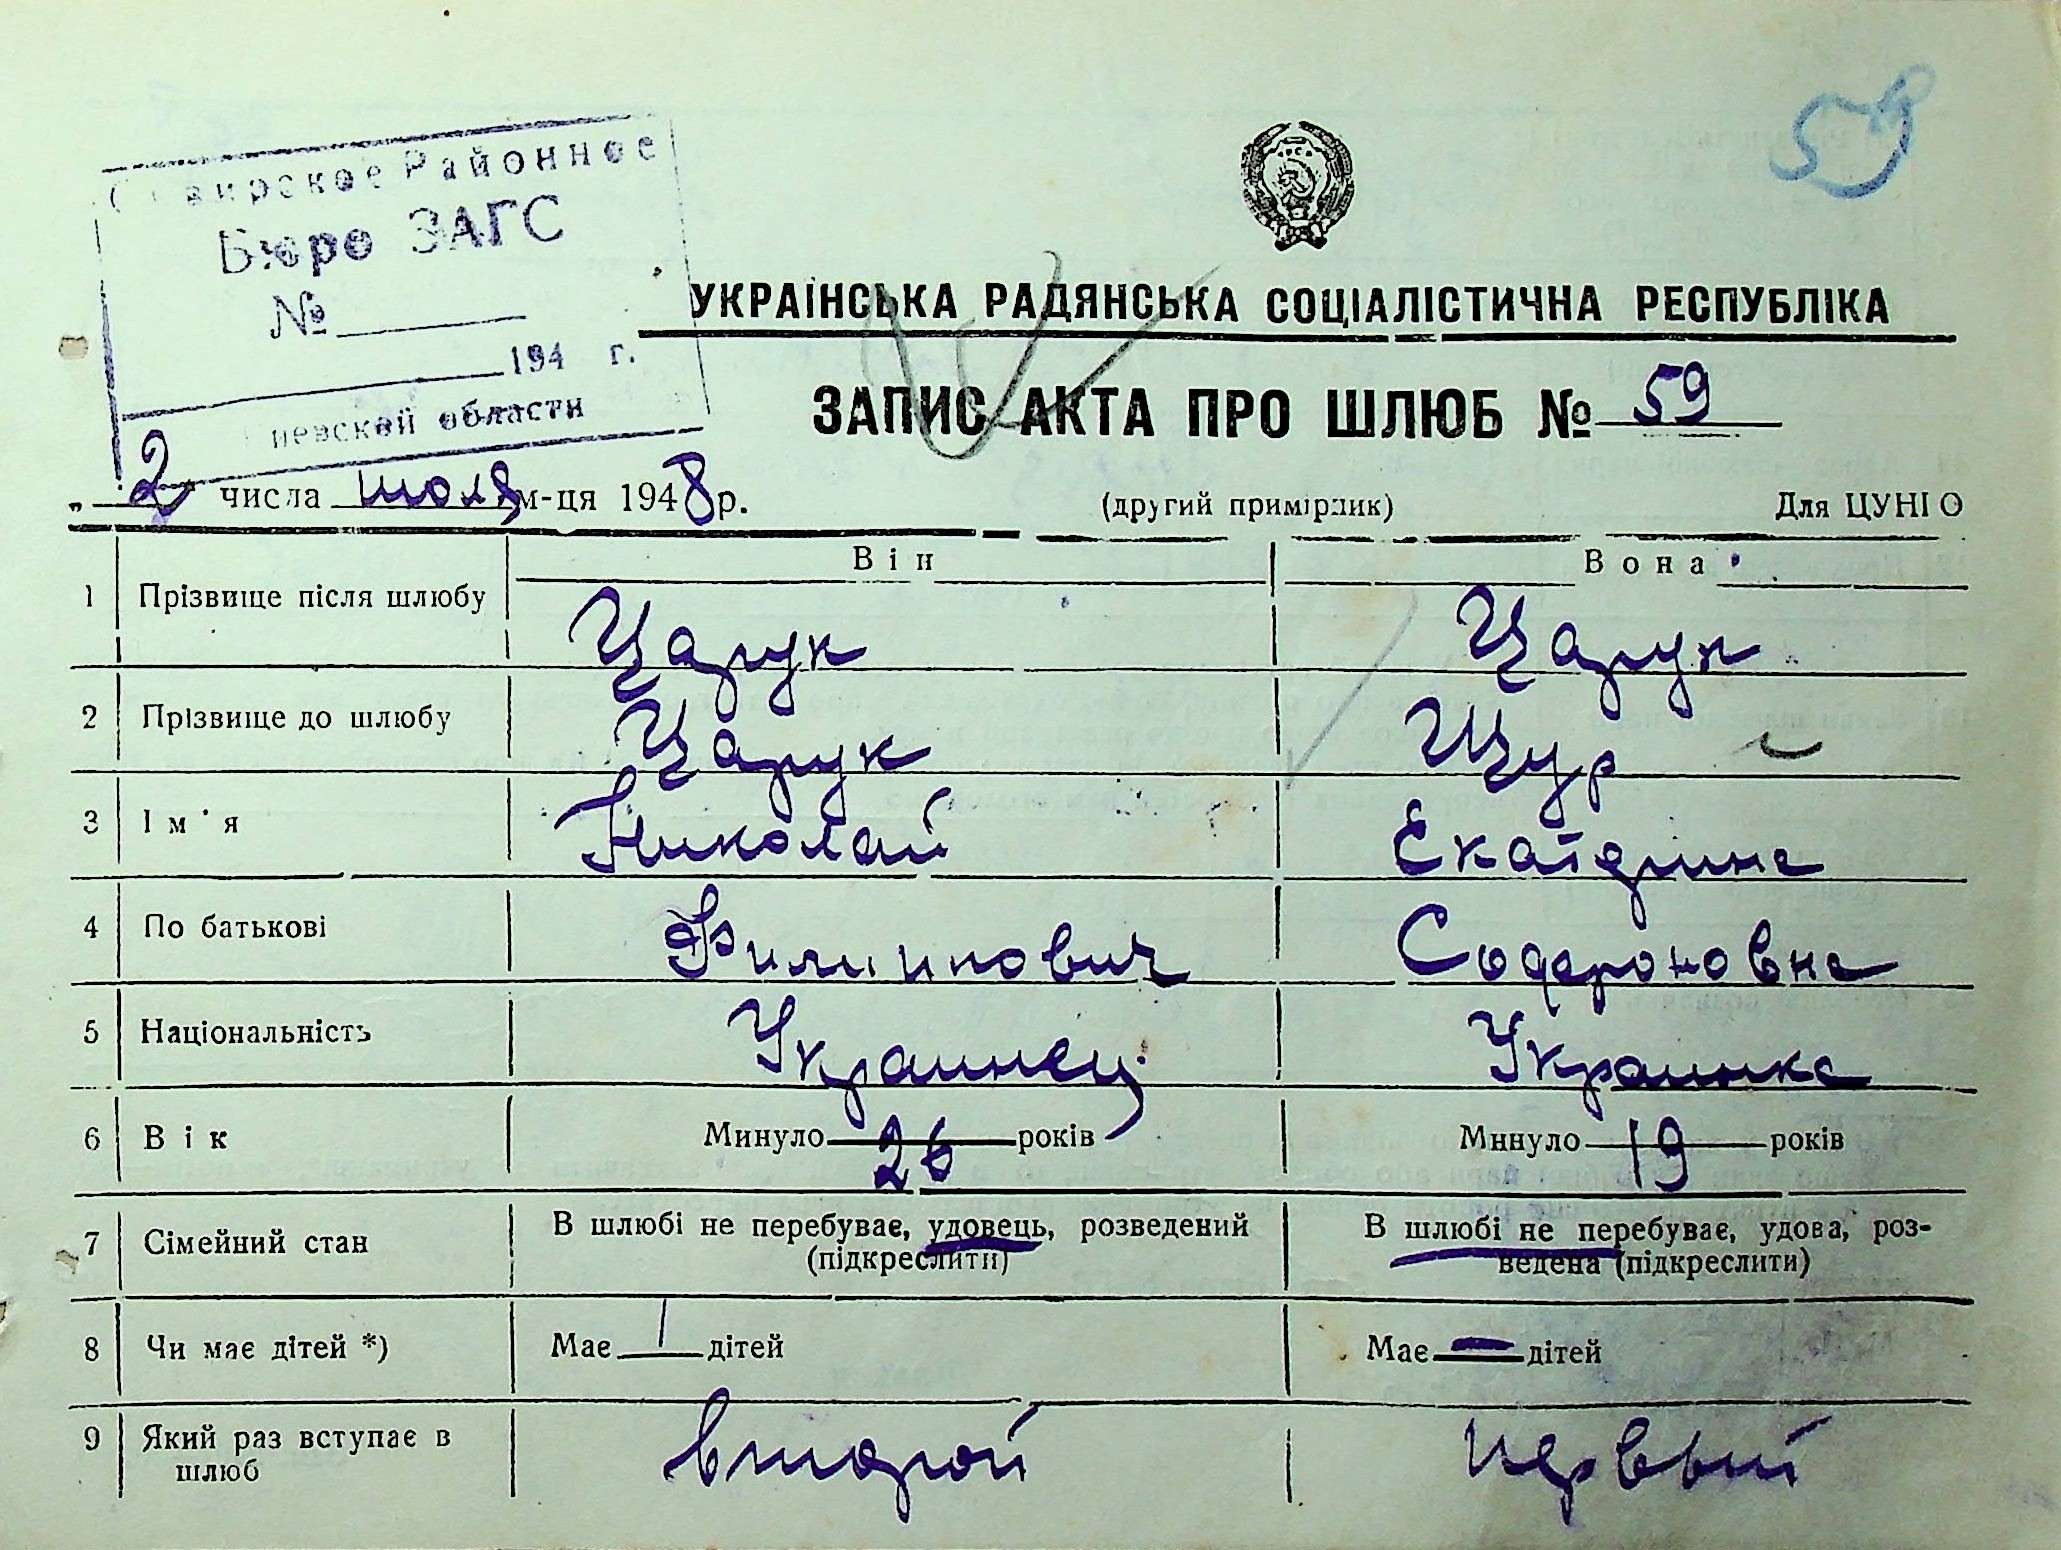 59
Районное
Бюро ЗАГС
№
194 г.
области
УКРАЇНСЬКА РАДЯНСЬКА СОЦІАЛІСТИЧНА РЕСПУБЛІКА
ЗАПИС АКТА ПРО ШЛЮБ № 59
„ 2 " числа июля м-ця 1948 р.
(другий примірник) Для ЦУНГО
Він Вона
1 Прізвище після шлюбу Царук Царук
2 Прізвище до шлюбу Царук Щур
3 Ім'я Николай Екатерина
4 По батькові Филиппович
5 Національність Украинец Украинка
6 Вік Минуло 26 років Минуло 19 років
7 Сімейний стан В шлюбі не перебуває, удовець, розведений (підкреслити) В шлюбі не перебуває, удова, роз-
ведена (підкреслити)
8 Чи має дітей *) Має 1 дітей Має — дітей
9 Який раз вступає в второй первый
шлюб